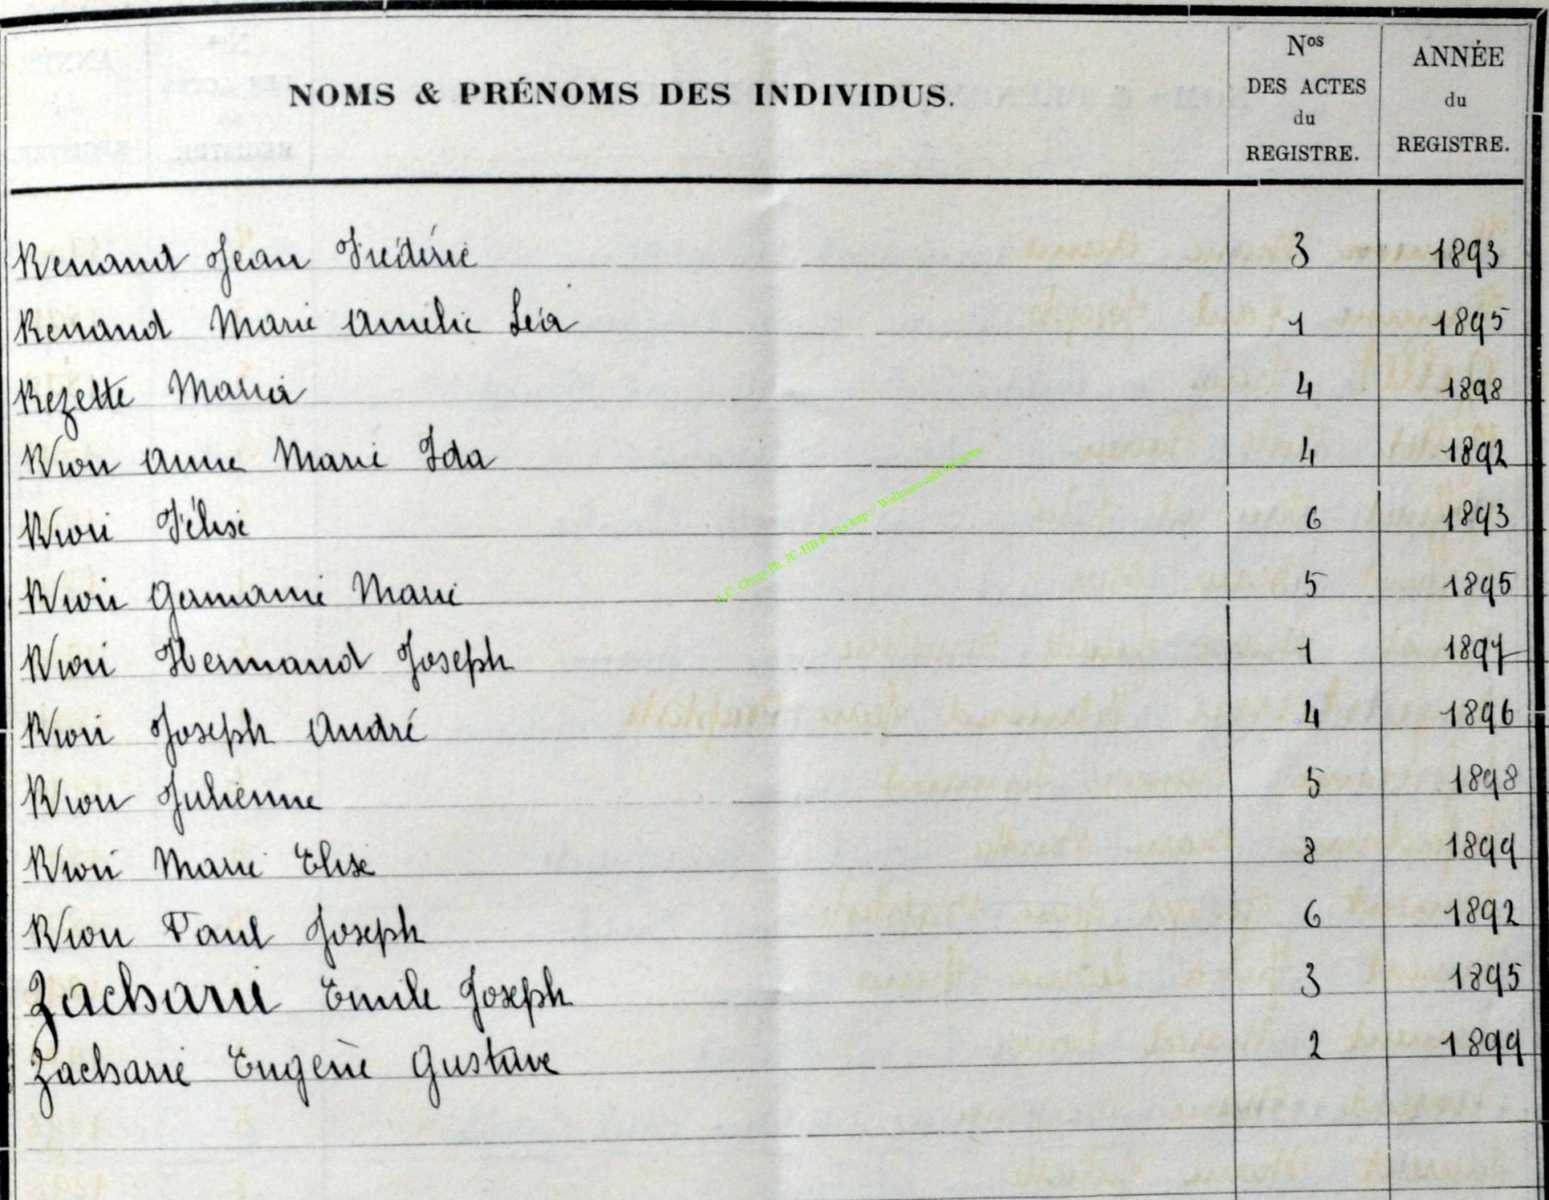 NOMS & PRÉNOMS DES INDIVIDUS.
Nos DES ACTES du REGISTRE.
ANNÉE du REGISTRE.
Renand Jean Frédéric 3 1893
Renand Marie Amélie Léa 1 1895
Rezette Maria 4 1898
Rion Anne Marie Ida 4 1892
Rion Félise 6 1893
Rion Germanie Marie 5 1895
Rion Hermand Joseph 1 1897
Rion Joseph André 4 1896
Rion Julienne 5 1898
Rion Marie Elise 8 1899
Rion Paul Joseph 6 1892
Zacharie Emile Joseph 3 1895
Zacharie Eugène Gustave 2 1899